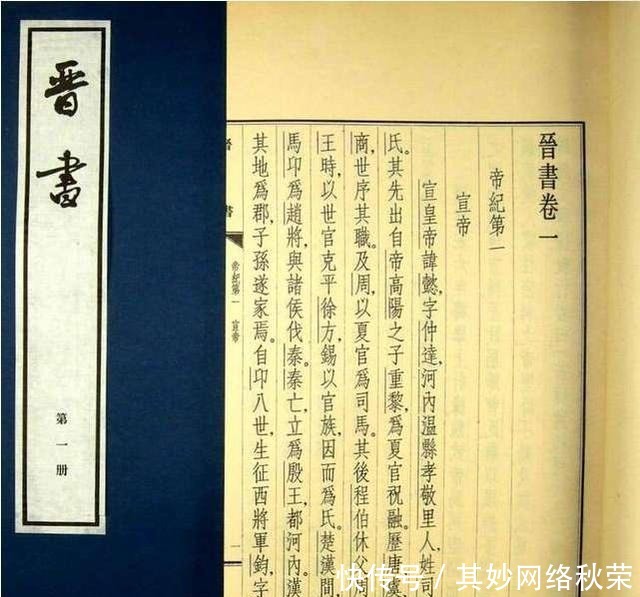 晋書
第一册
晉書卷一
帝紀第一
宣帝
宣皇帝諱懿,字仲達,河內溫縣孝敬里人,姓司
氏。其先出自帝高陽之子重黎,爲夏官祝融。歷唐虞
商,世序其職。及周,以夏官爲司馬。其後程伯休父,周
王時,以世官克平徐方,錫以官族,因而爲氏。楚漢間
馬卬爲趙將,與諸侯伐秦。秦亡,立爲殷王,都河內。漢
其地爲郡,子孫遂家焉。自卬八世,生征西將軍鈞,字
晉書
帝紀第一 宣帝
一
快传号 / 其妙网络秋荣